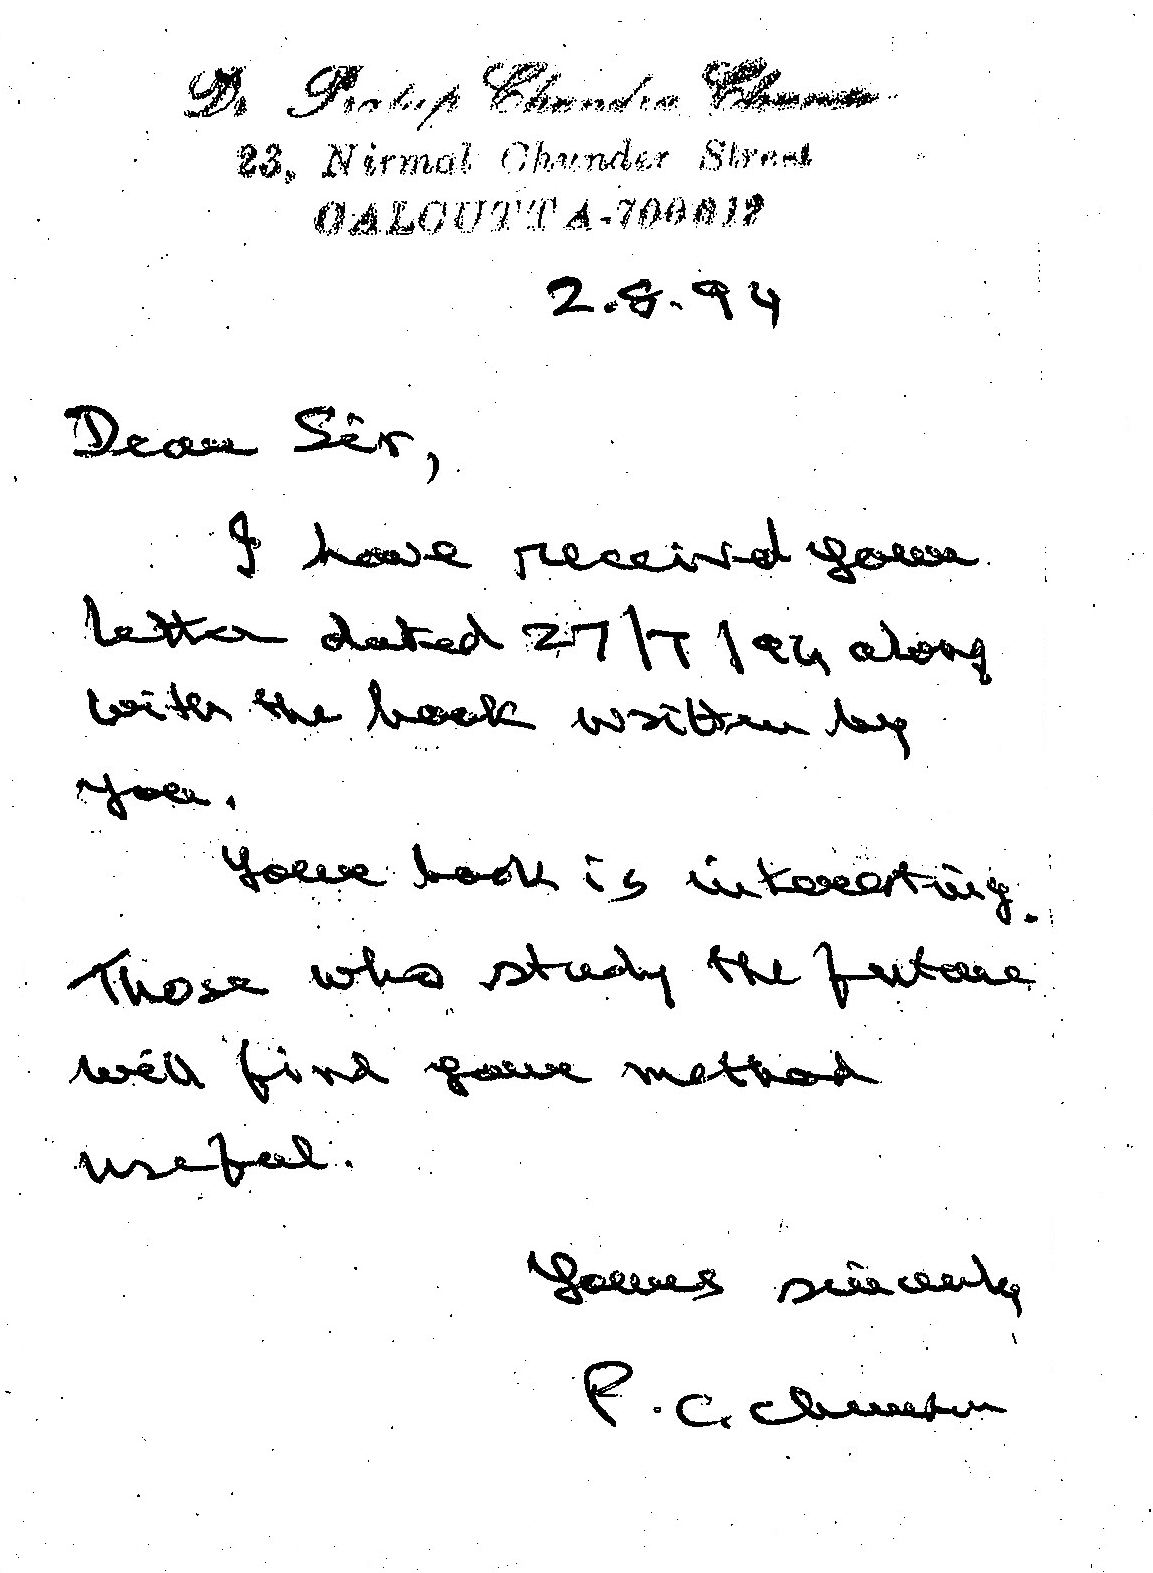 Dr Pratap Chandra Chunder
23, Nirmal Chunder Street
CALCUTTA-700012
2.8.94
Dear Sir,
I have received your
letter dated 27/7/94 along
with the book written by
you.
Your book is interesting.
Those who study the future
will find your method
useful.
Yours sincerely
P. C. Chunder